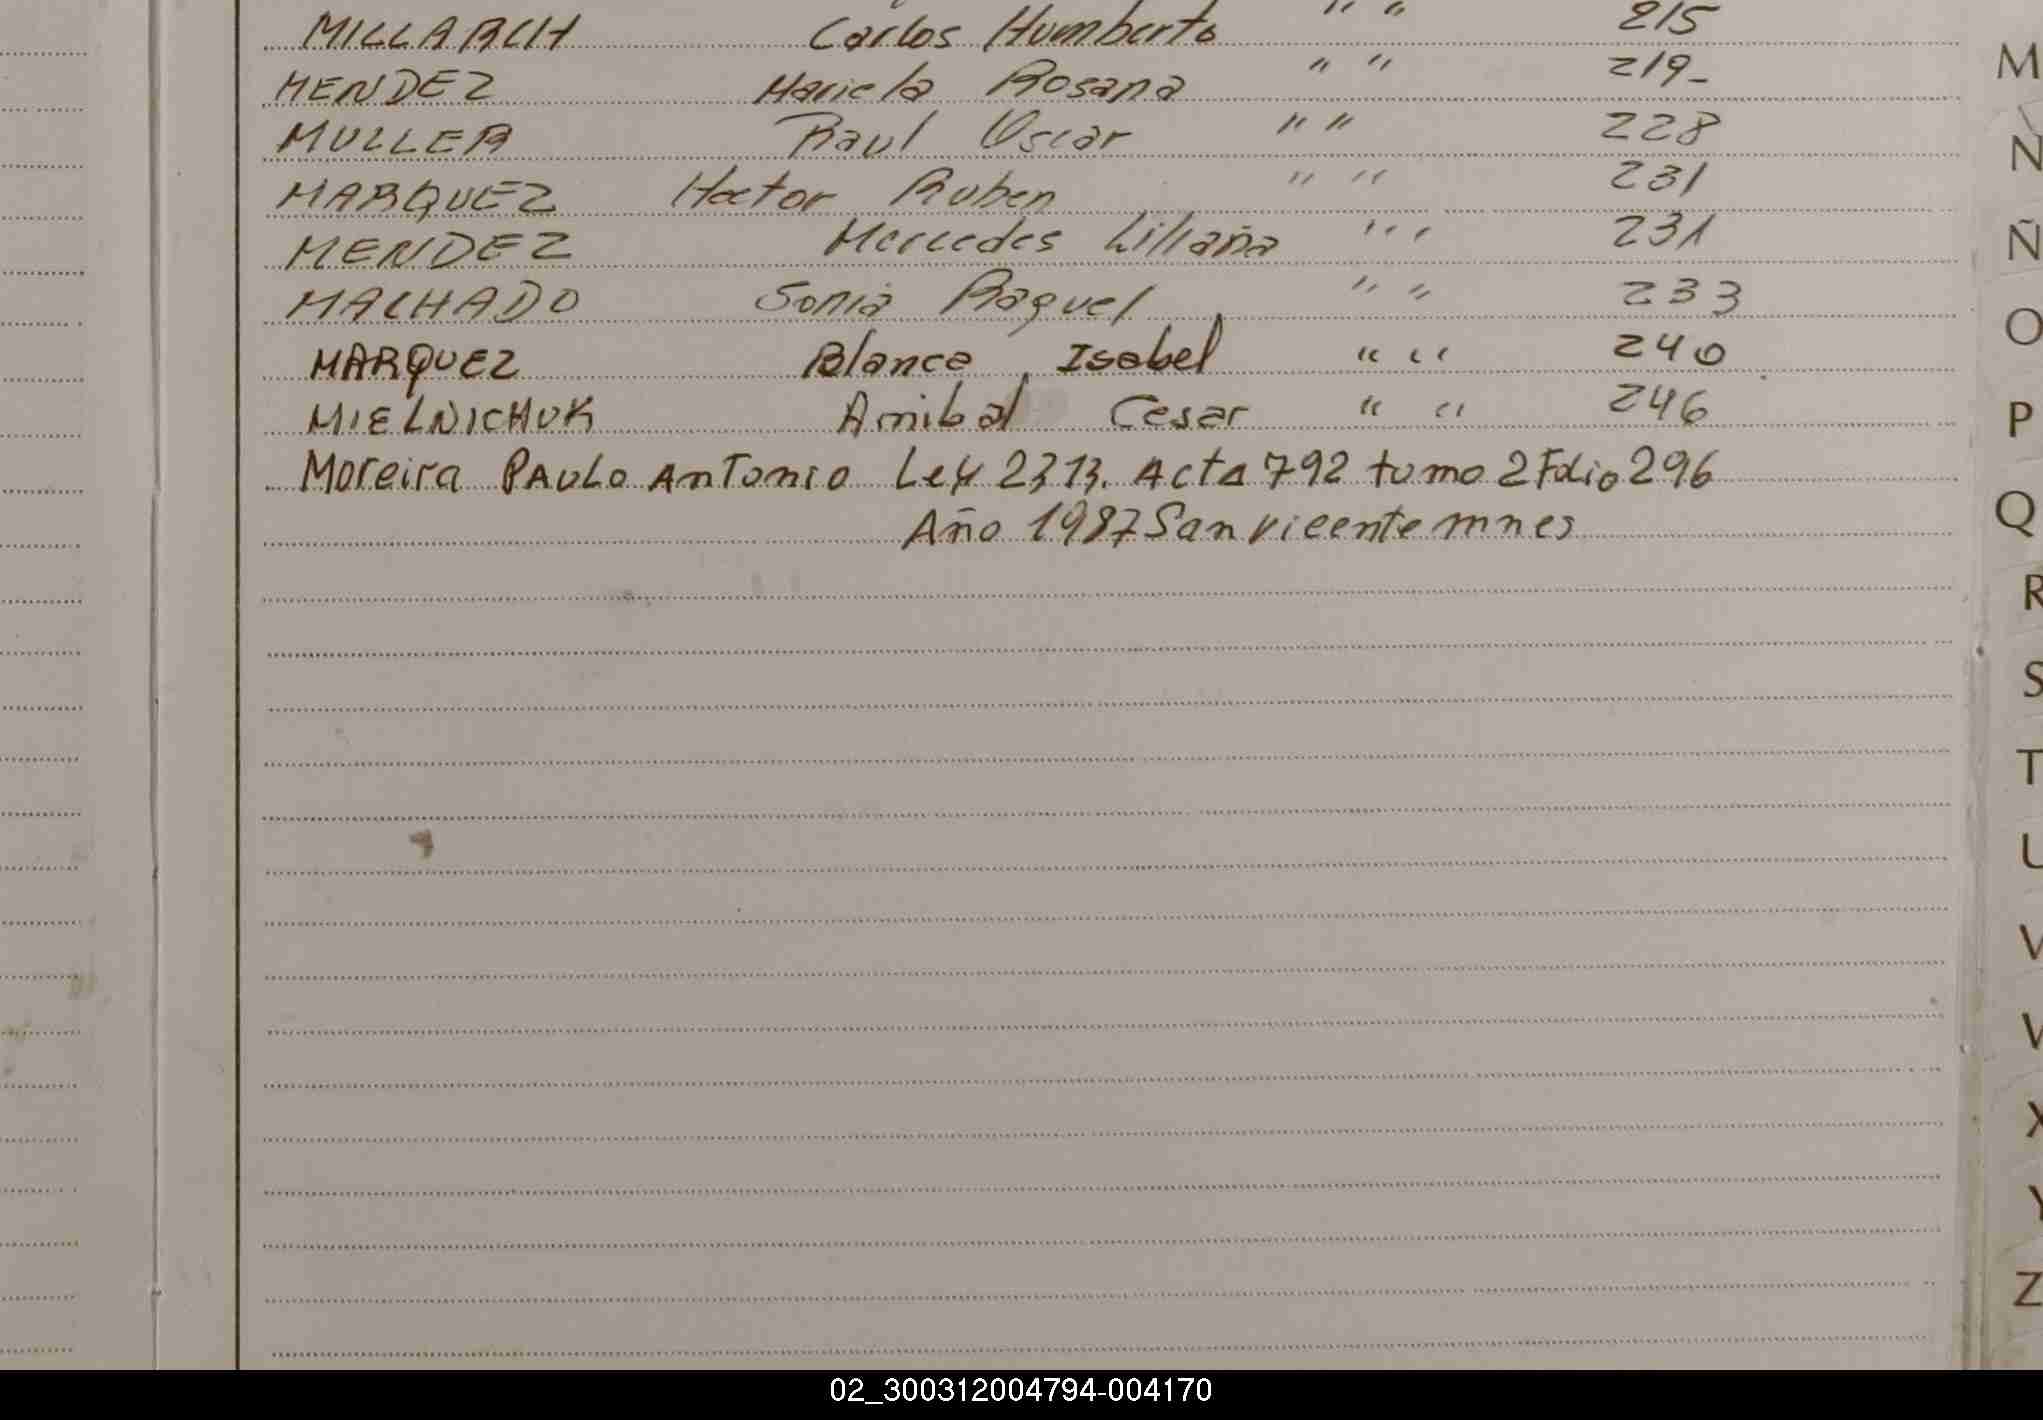 MILLARCH Carlos Humberto " " 215
MENDEZ Mariela Rosana " " 219-
MULLER Raul Oscar " " 228
MARQUEZ Hector Ruben " " 231
MENDEZ Mercedes Liliana " " 231
MACHADO Sonia Raquel " " 233
MARQUEZ Blanca Isabel " " 240
MIELNICHUK Anibal Cesar " " 246
Moreira PAULO AnTonio Ley 2313. Acta 792 tomo 2 Folio 296
Año 1987 San Vicente mnes
M
N
Ñ
O
P
Q
R
S
T
U
V
W
X
Y
Z
02_300312004794-004170